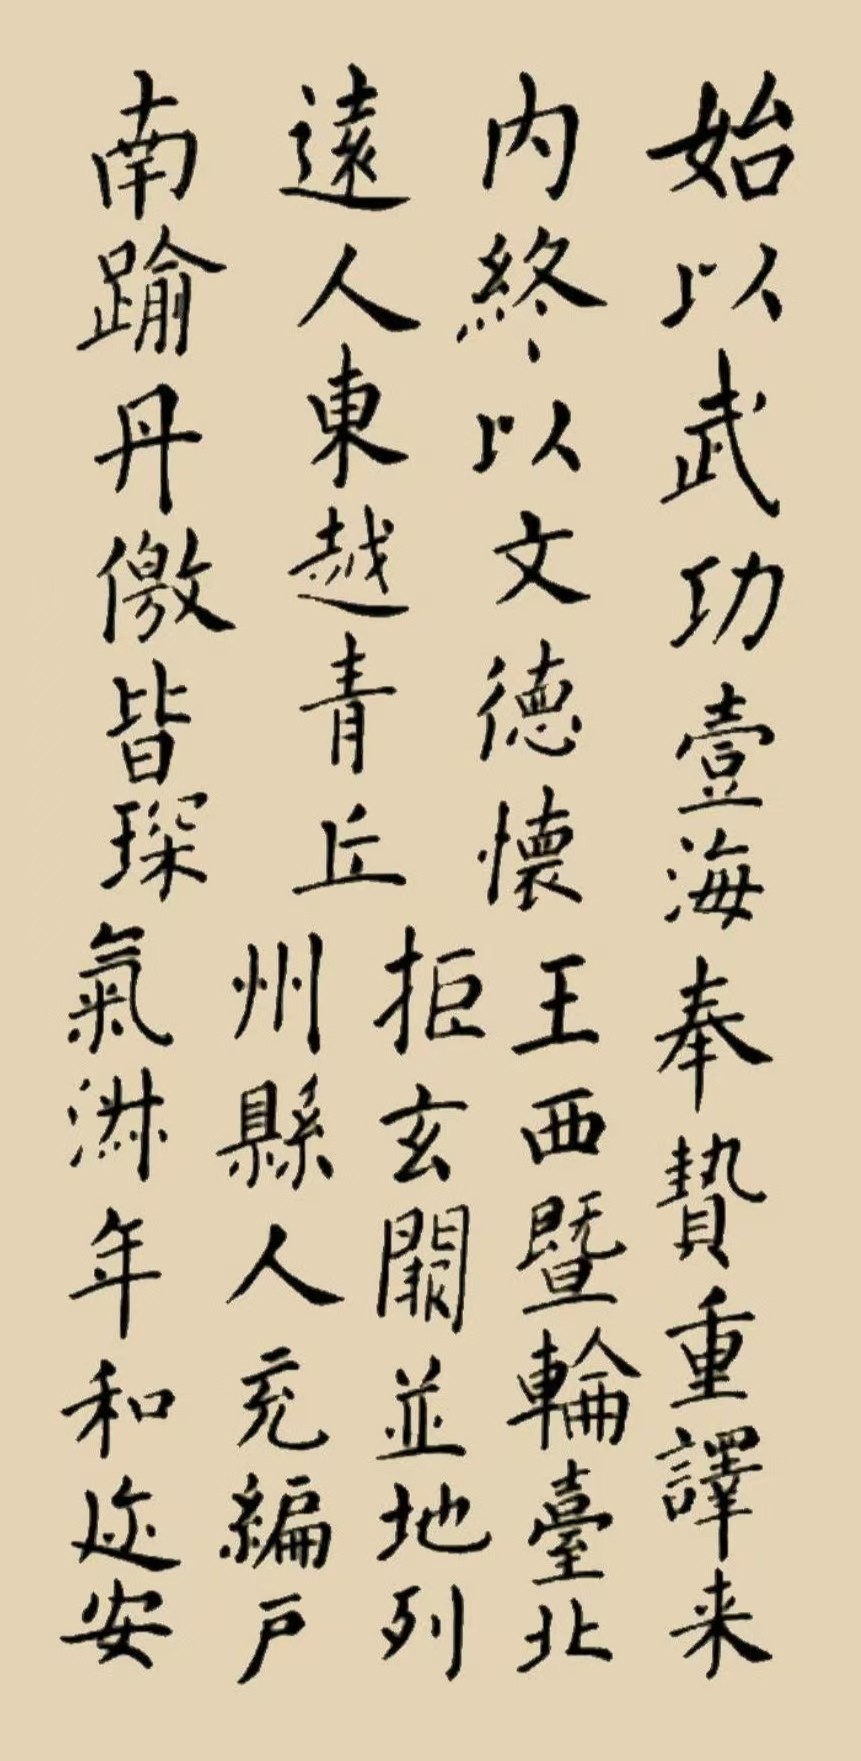 始以武功壹海
内終以文德懷
遠人東越青丘
南踰丹儌皆琛
奉贄重譯来
王西暨輪臺北
拒玄闕並地列
州縣人充編戶
氣淑年和迩安